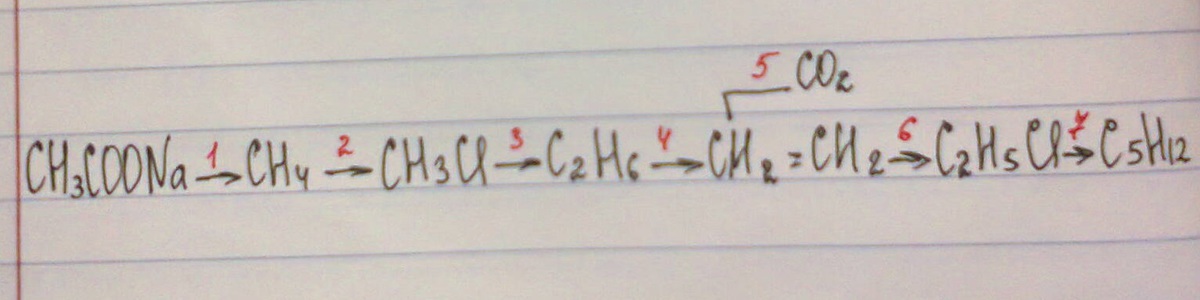 5 CO₂
CH₃COONa 1→ CH₄ 2→ CH₃Cl 3→ C₂H₆ 4→ CH₂=CH₂ 6→ C₂H₅Cl 7→ C₅H₁₂